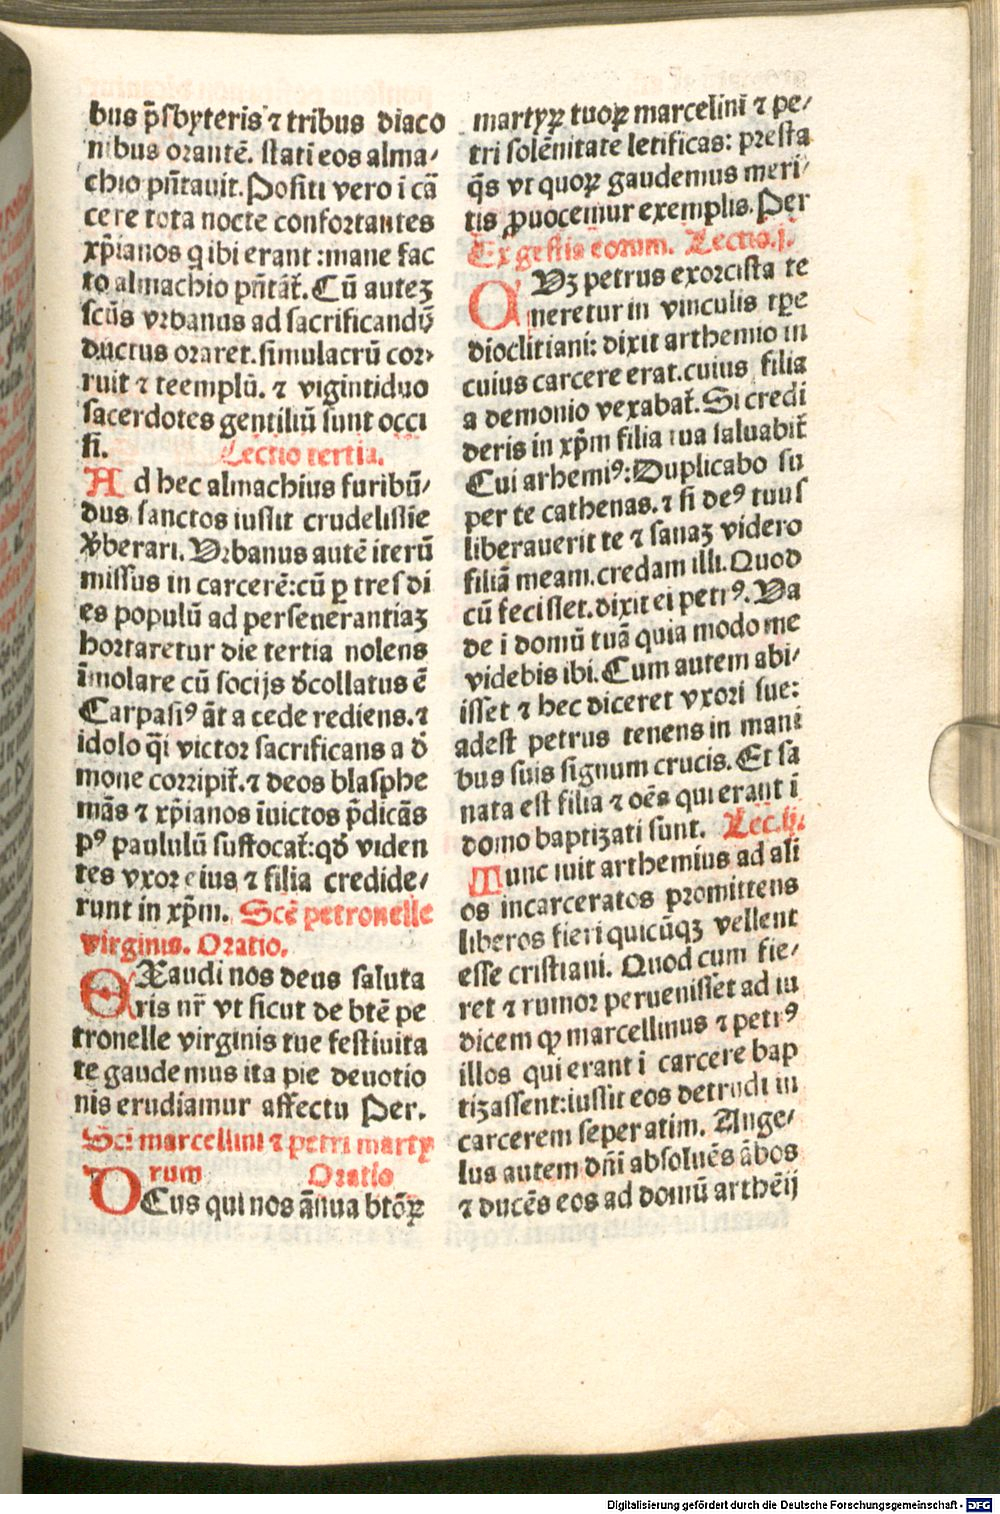 bus p̄sbyteris ⁊ tribus diaco
nibus orantē. stati eos alma⸗
chio pñtauit. Positi vero ī cā
cere tota nocte confortantes
xp̄ianos q ibi erant: mane fac
to almachio pñtāt̄. Cū autēȝ
scūs vrbanus ad sacrificandū
ductus oraret. simulacrū cor⸗
ruit ⁊ teemplū. ⁊ vigintiduo
sacerdotes gentiliū sunt occi
si. Lectio tertia.
Ad hec almachius furibū⸗
dus sanctos iussit crudelissīe
v̄berari. Vrbanus autē iterū
missus in carcerē: cū ꝑ tres di
es populū ad perseuerantiaȝ
hortaretur die tertia nolens
īmolare cū socijs d̄collatus ē
Carpasiꝰ āt a cede rediens. ⁊
idolo q̄i victor sacrificans a d̄
mone corripit̄. ⁊ deos blasphe
mās ⁊ xp̄ianos īuictos p̄dicās
pꝰ paululū suffocat̄: qd̄ viden
tes vxor eius ⁊ filia credide⸗
runt in xp̄m. Scē petronelle
virginis. Oratio.
EXaudi nos deus saluta
ris nr̄ vt sicut de btē pe
tronelle virginis tue festiuita
te gaudemus ita pie deuotio
nis erudiamur affectu Per.
Scī marcellini ⁊ petri martyꝝ
rum Oratio
DEus qui nos ānua btōꝝ
martyꝝ tuoꝝ marcelini ⁊ pe⸗
tri solēnitate letificas: presta
q̄s vt quoꝝ gaudemus meri⸗
tis ꝓuocemur exemplis. Per
Ex gestis eorum. Lectio.j.
QVȝ petrus exorcista te
neretur in vinculis tꝑe
dioclitiani: dixit arthemio in
cuius carcere erat. cuius filia
a demonio vexabat̄. Si credi
deris in xp̄m filia tua saluabit̄
Cui arhemiꝰ: Duplicabo su
per te cathenas. ⁊ si deꝰ tuus
liberauerit te ⁊ sanaȝ videro
filiā meam. credam illi. Quod
cū fecisset. dixit ei petrꝰ. Va
de ī domū tuā quia modo me
videbis ibi. Cum autem abi⸗
isset ⁊ hec diceret vxori sue:
adest petrus tenens in mani
bus suis signum crucis. Et sa
nata est filia ⁊ oēs qui erant ī
domo baptiȝati sunt. Lec.ij.
Tunc iuit arthemius ad ali
os incarceratos promittens
liberos fieri quicūqȝ vellent
esse cristiani. Quod cum fie⸗
ret ⁊ rumor peruenisset ad iu
dicem ꝙ marcellinus ⁊ petrꝰ
illos qui erant ī carcere bap
tiȝassent: iussit eos detrudi in
carcerem seperatim. Ange⸗
lus autem dñi absoluēs ābos
⁊ ducēs eos ad domū arthēij
Digitalisierung gefördert durch die Deutsche Forschungsgemeinschaft - DFG